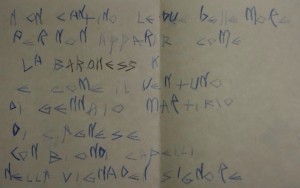 NEN CANTINO LE DUE BELLE MORE
PER NON APPARIR COME
LA BARONESS X
E COME IL VENTUNO
DI GENNAIO MARTIRIO
DI S. AGNESE
CON BIONDI CAPELLI
NELLA VIGNA DEL SIGNORE